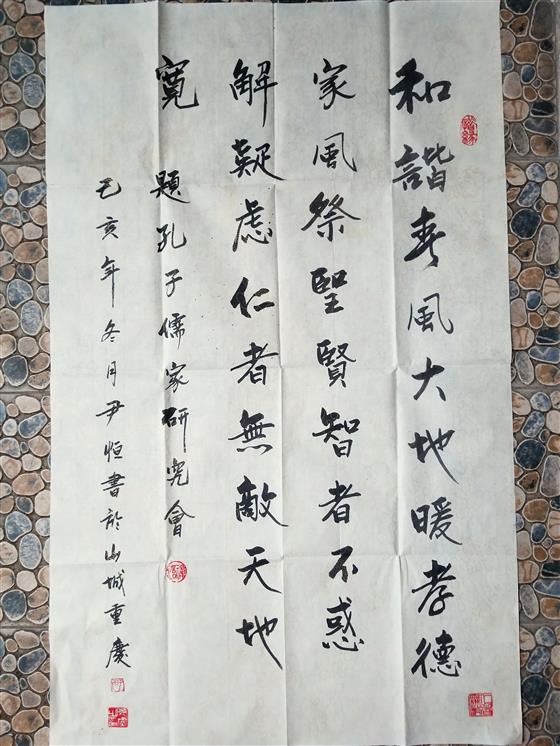 和諧春風大地暖孝德
家風祭聖賢智者不惑
解疑慮仁者無敵天地
寬 題孔子儒家研究會
己亥年冬月尹恒書於山城重慶